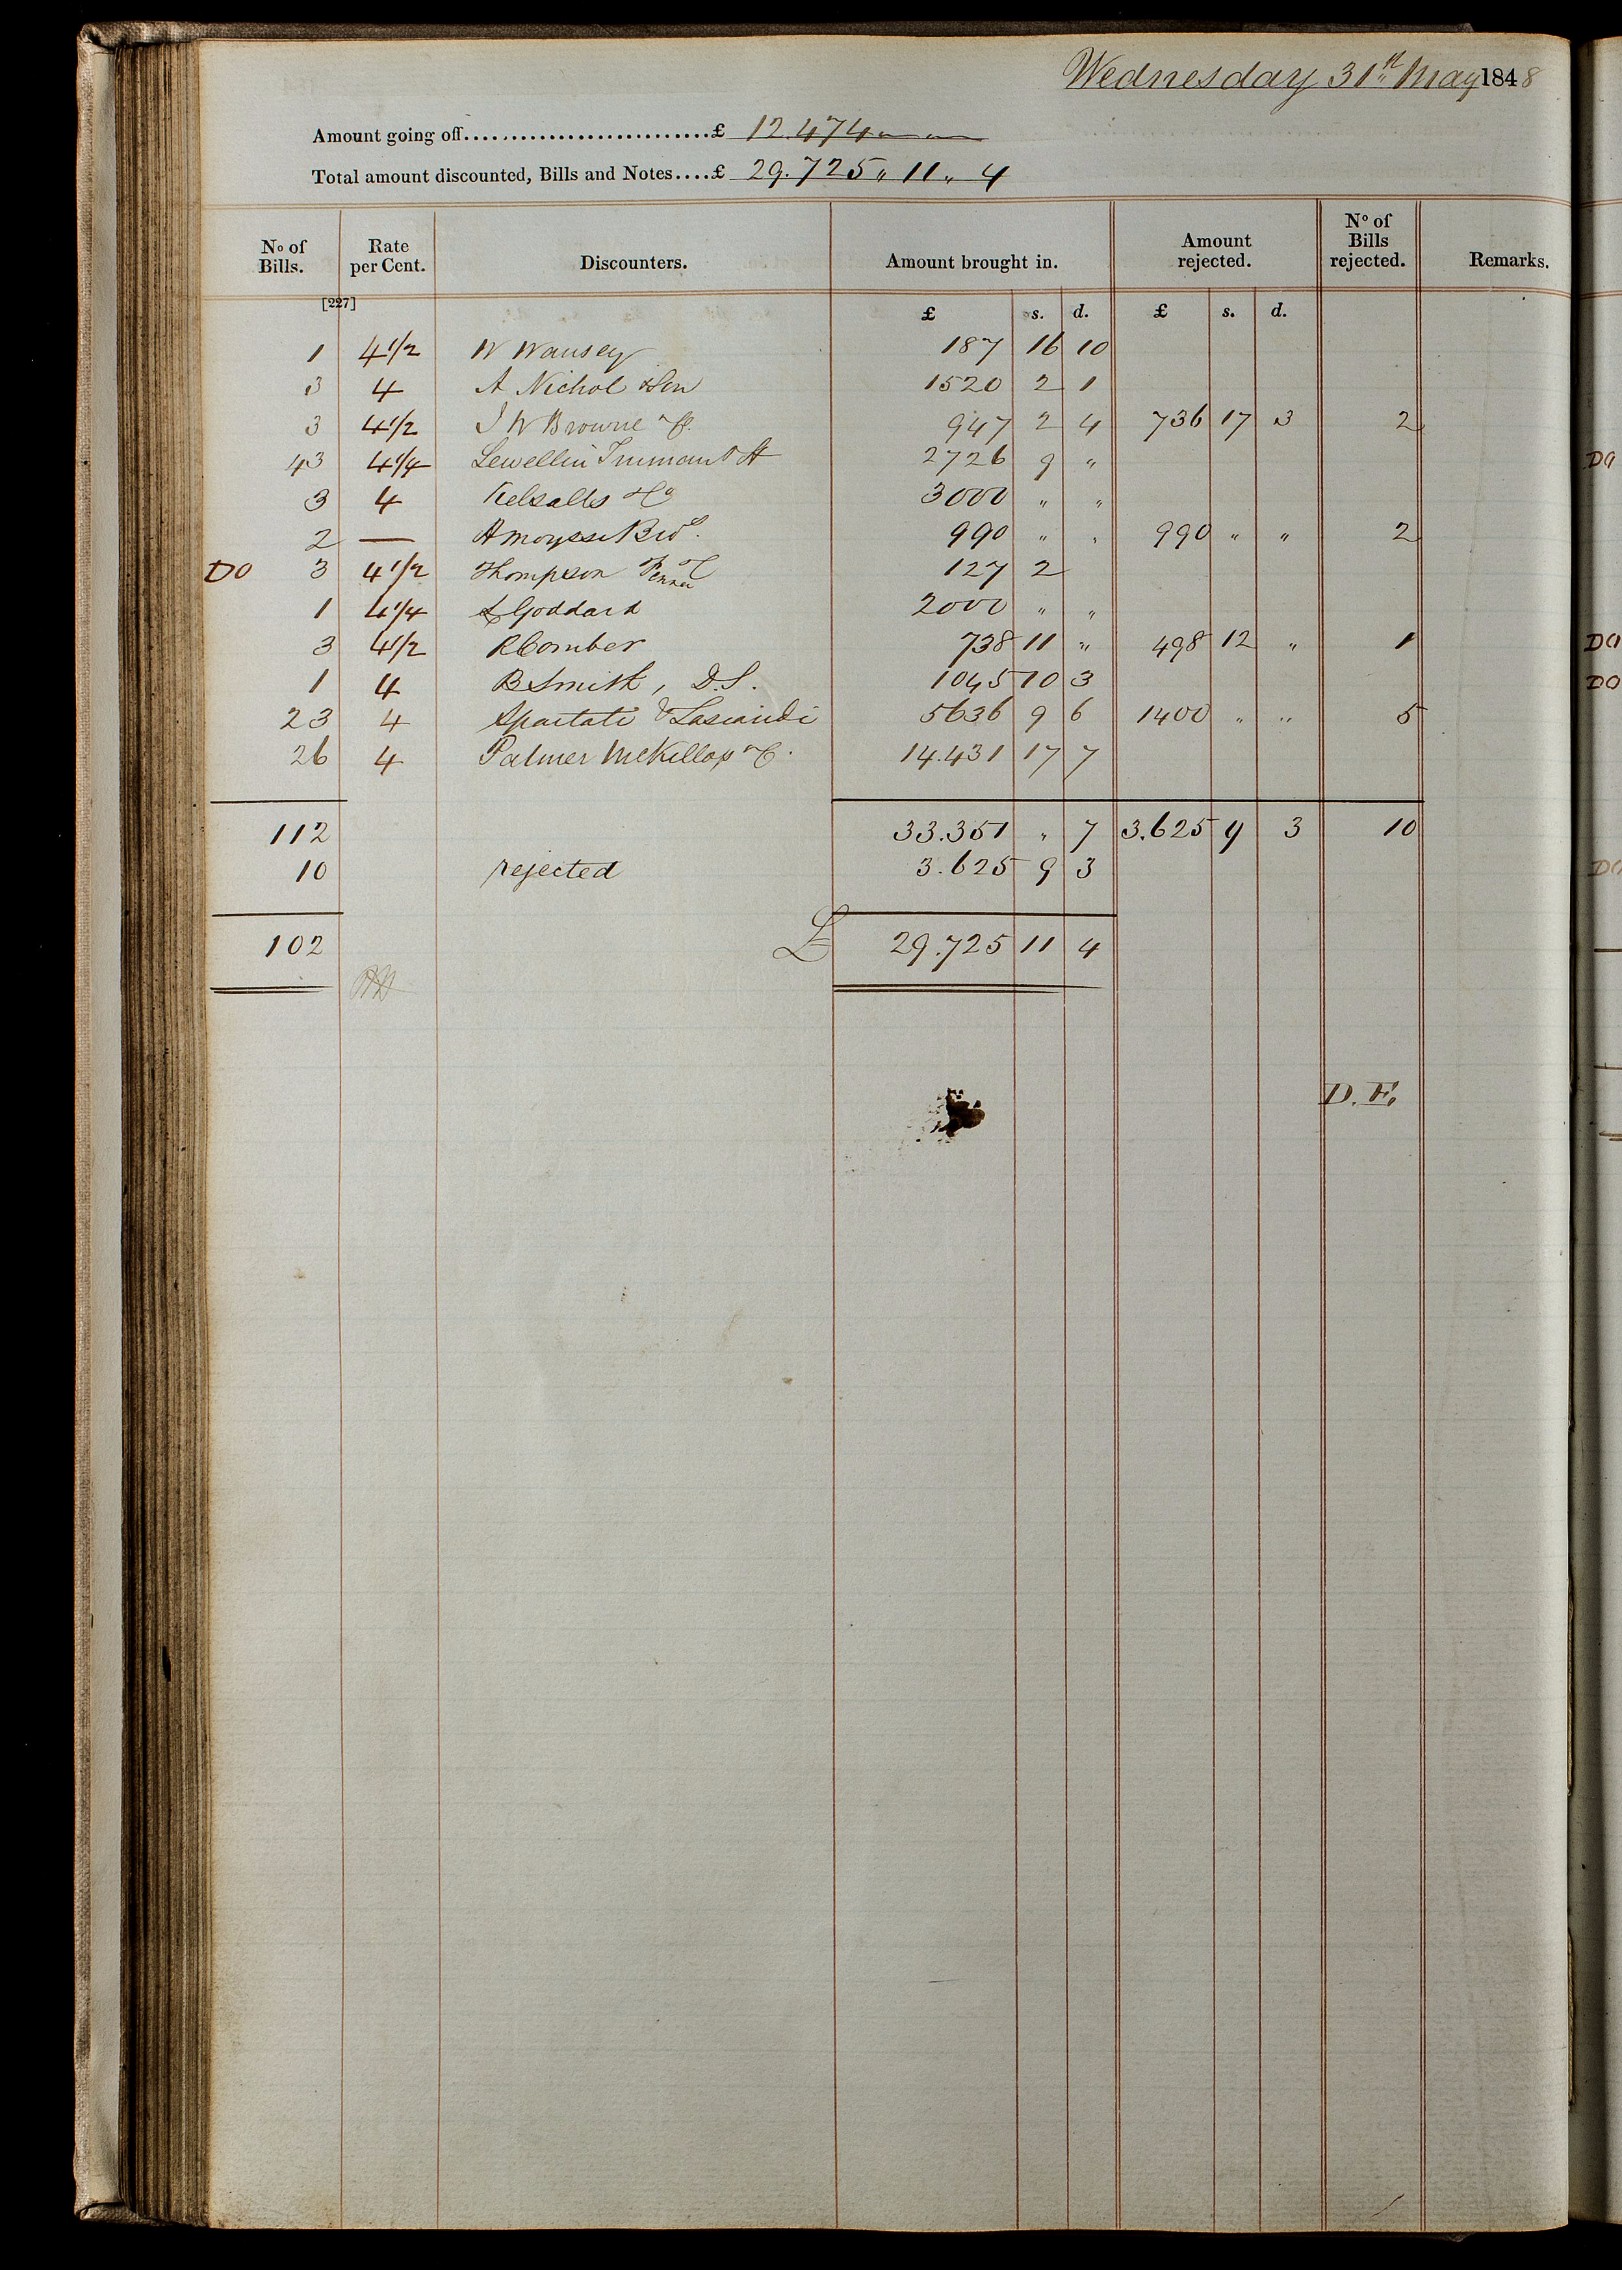 Wednesday 31st May 1848
Amount going off..........................£ 12.474 " "
Total amount discounted, Bills and Notes....£ 29.725 " 11 " 4
No of Bills. Rate per Cent. Discounters. Amount brought in. Amount rejected. No of Bills rejected. Remarks.
[227]
£ s. d. £ s. d.
1 4 1/2 W Wansey 187 16 10
3 4 A Nichol & Son 1520 2 1
3 4 1/2 J W Browne & Co. 947 2 4 736 17 3 2
43 4 1/4 Lewellin 2726 9 "
3 4 Kelsalls & Co 3000 " "
2 — Bros. 990 " " 990 " " 2
DO 3 4 1/2 Thompson Fenner & C 127 2
1 4 1/4 Goddard 2000 " "
3 4 1/2 R Comber 738 11 " 498 12 " 1
1 4 B Smith, D.S. 1045 10 3
23 4 Spartali & Lascaridi 5636 9 6 1400 " " 5
26 4 Palmer McKillop & C. 14.431 17 7
112 33.351 " 7 3.625 9 3 10
10 rejected 3.625 9 3
102 £ 29.725 11 4
D.F.
DO
DO
DO
DO